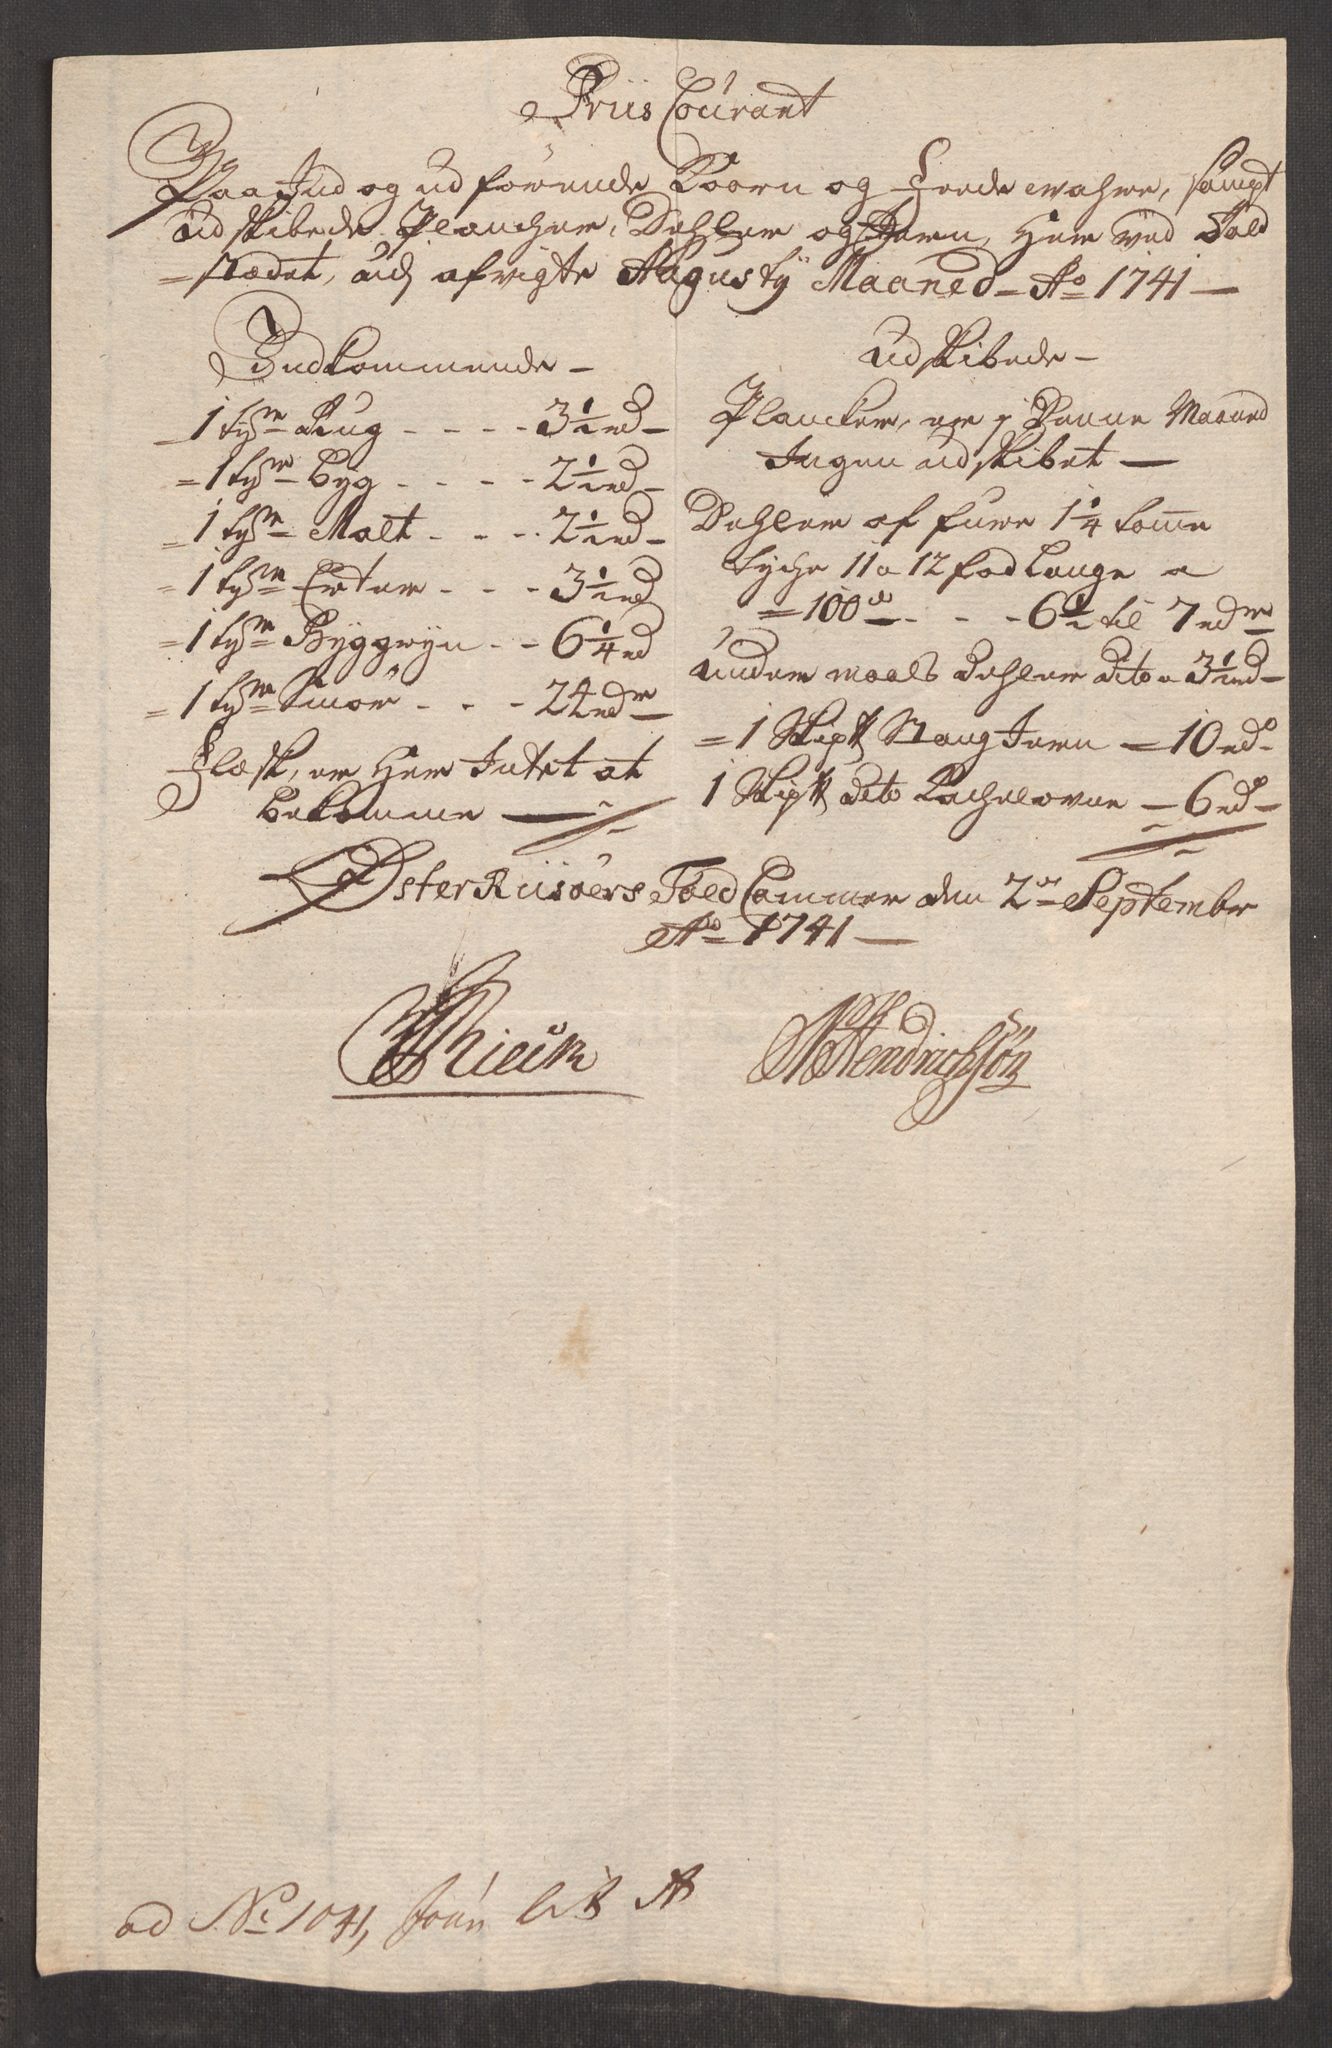 Priis Courant
Paa Ind og udförende Koorn og Feedevahre, sampt
Udskibede Plancher, Dehler og Jern, Her ved Told
=stædet, udj afvigte Augusty Maaned - Ao 1741 -
Indkommende -
1 tøn Rug - - - - 3 1/2 rd -
= 1 tøn Byg - - - - 2 1/2 rd -
= 1 tøn Malt - - - 2 1/2 rd -
= 1 tøn Erter - - - 3 1/2 rd
= 1 tøn Byggryn - - 6 1/4 rd
= 1 tøn Smör - - - 24 rdr
Flæsk, er Her Intet at
bekomme -
Udskibede -
Plancker, er j Denne Maaned
Ingen udskibet -
Dehler af furre 1 1/4 tomme
tyche 11 a 12 fod Lange a
= 100de - - - 6 1/2 til 7 rdr
Under maals Dehler dito a 3 1/2 rd -
= 1 Skip℔ Stang Jern = 10 rdr
1 Skip℔ dito Kachelovne - 6 rdr -
ØsterRiisöers Told Cammer den 2den September
Ao 1741 -
Hendrichsön
ad No 1041, Lit A